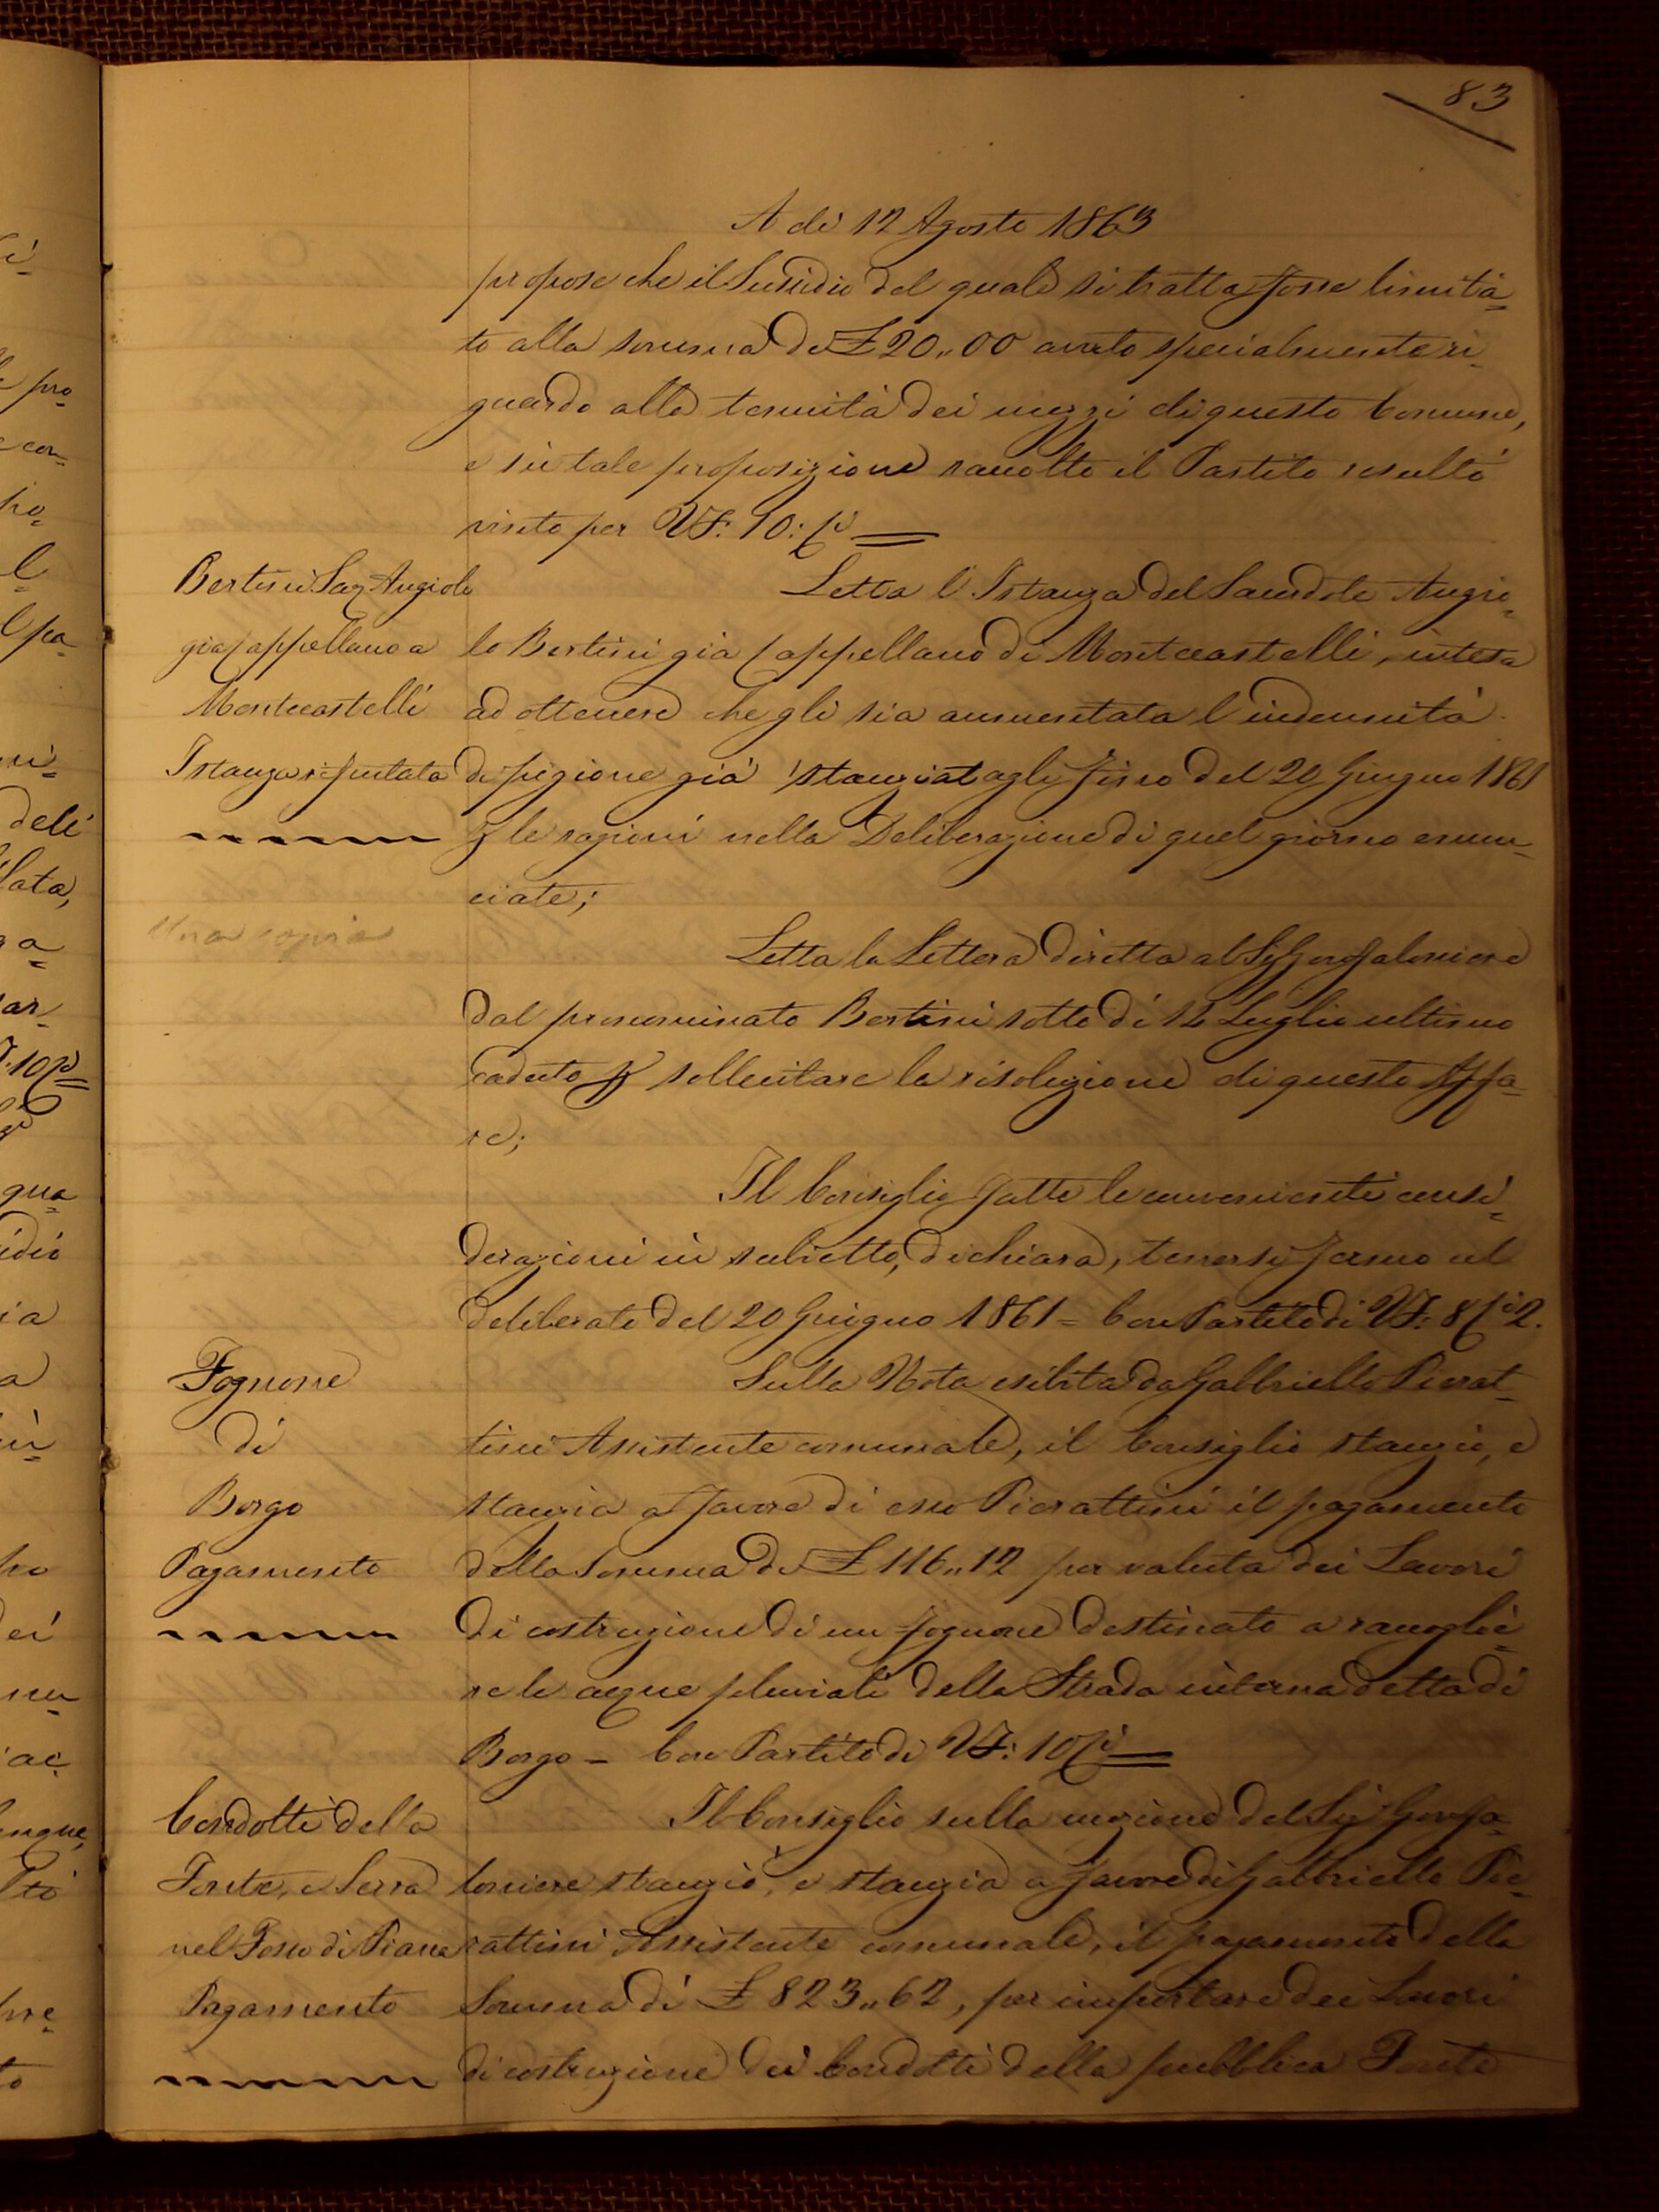 83
A dì 12 Agosto 1863
propose che il Sussidio del quale si tratta fosse limita=
to alla somma di £ 20,,00 avuto specialmente ri=
guardo alla tenuità dei mezzi di questo Comune,
e su tale proposizione raccolto il Partito resultò
vinto per VF: 10: Ci =
Bertini Sac. Angiolo
già Cappellano a
Montecastelli
Istanza rifiutata
Letta l'Istanza del Sacerdote Angio=
lo Bertini già Cappellano di Montecastelli, intesa
ad ottenere che gli sia aumentata l'indennità
di pigione già stanziatagli fino del 20 Giugno 1861
le ragioni nella Deliberazione di quel giorno enun=
ciate;
Una copia
Letta la Lettera diretta al Sig Gonfaloniere
dal prenominato Bertini sotto dì 12 Luglio ultimo
caduto sollecitare la risoluzione di questo Affa=
re;
Il Consiglio fatte le convenienti consi=
derazioni in subietto, dichiara, tenersi fermo al
deliberato del 20 Giugno 1861 = Con Partito di VF: 8 Ci 2.
Fognone
di
Borgo
Pagamento
Sulla Nota esibita da Gabbriello Pierat=
tini Assistente comunale, il Consiglio stanziò, e
stanzia a favore di esso Pierattini il pagamento
della Somma di £ 116,,12 per valuta dei Lavori
di costruzione di un fognone destinato a raccoglie=
re le acque pluviali della Strada interna detta di
Borgo = Con Partito di VF: 10 Ci =
Condotti della
Fonte, e Serra
nel Fosso di Piana
Pagamento
Il Consiglio sulla mozione del Sig Gonfa=
loniere stanziò, e stanzia a favore di Gabbriello Pie=
rattini Assistente comunale, il pagamento della
Somma di £ 823,,62, per importare dei Lavori
di costruzione dei Condotti della pubblica Fonte